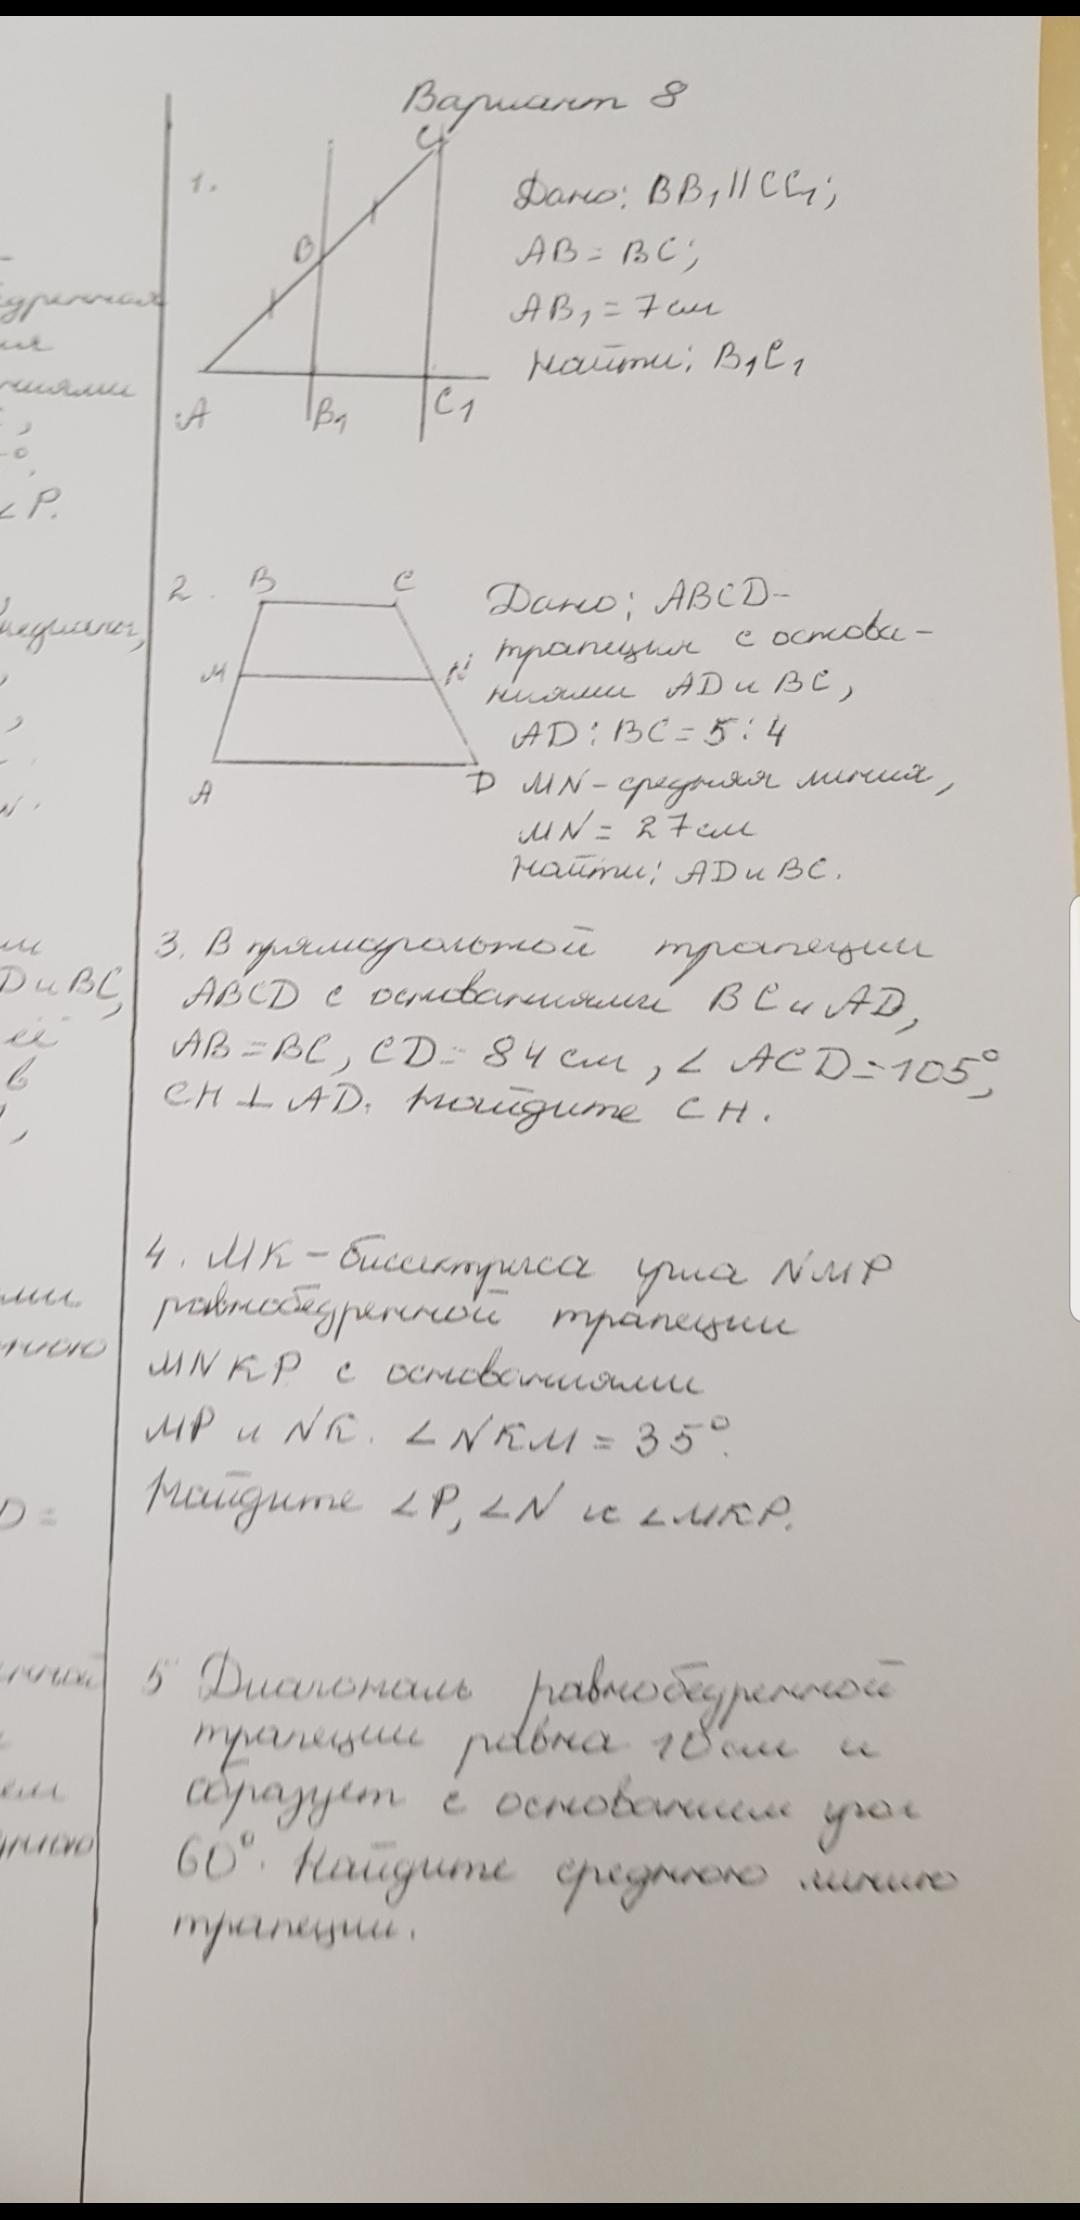 Вариант 8
1.
C
B
A
B₁
C₁
Дано: BB₁ || CC₁;
AB = BC;
AB₁ = 7 см
Найти: B₁C₁
2.
B
C
M
N
A
D
Дано: ABCD-
трапеция с основа-
ниями AD и BC,
AD : BC = 5 : 4
MN - средняя линия,
MN = 27 см
Найти: AD и BC.
3. В прямоугольной трапеции
ABCD с основаниями BC и AD,
AB = BC, CD = 84 см, ∠ ACD = 105°,
CH ⊥ AD. Найдите CH.
4. MK - биссектриса угла NMP
равнобедренной трапеции
MNKP с основаниями
MP и NK. ∠NKM = 35°.
Найдите ∠P, ∠N и ∠MKP.
5 Диагональ равнобедренной
трапеции равна 10 см и
образует с основанием угол
60°. Найдите среднюю линию
трапеции.
∠P.
D и BC,
её
в
D =